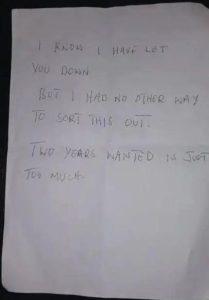 I KNOW I HAVE LET
YOU DOWN
BUT I HAD NO OTHER WAY
TO SORT THIS OUT.
TWO YEARS WANTED IS JUST
TOO MUCH